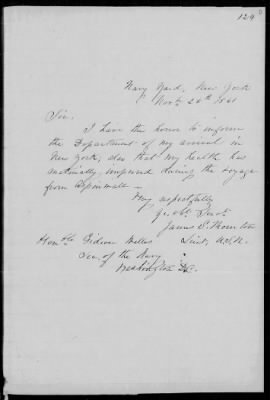 124
Navy Yard, New York
Nov. 26th 1861
Sir.
I have the honor to inform
the Department of my arrival in
New York, also that my health has
materially improved during the voyage
from Aspinwall —
Very respectfully
Yr. obt. Servt.
James S. Thornton
Honble Gideon Welles Lieut. U.S.N.
Sec. of the Navy
Washington D.C.